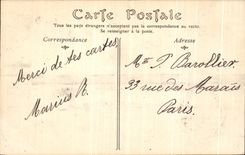 Carte Postale
Tous les pays étrangers n'acceptent pas la correspondance au verso.
Se renseigner à la poste.
Correspondance
Adresse
Merci de tes cartes
Marius R.
Mlle J. Barollier
33 rue des Marais
Paris.